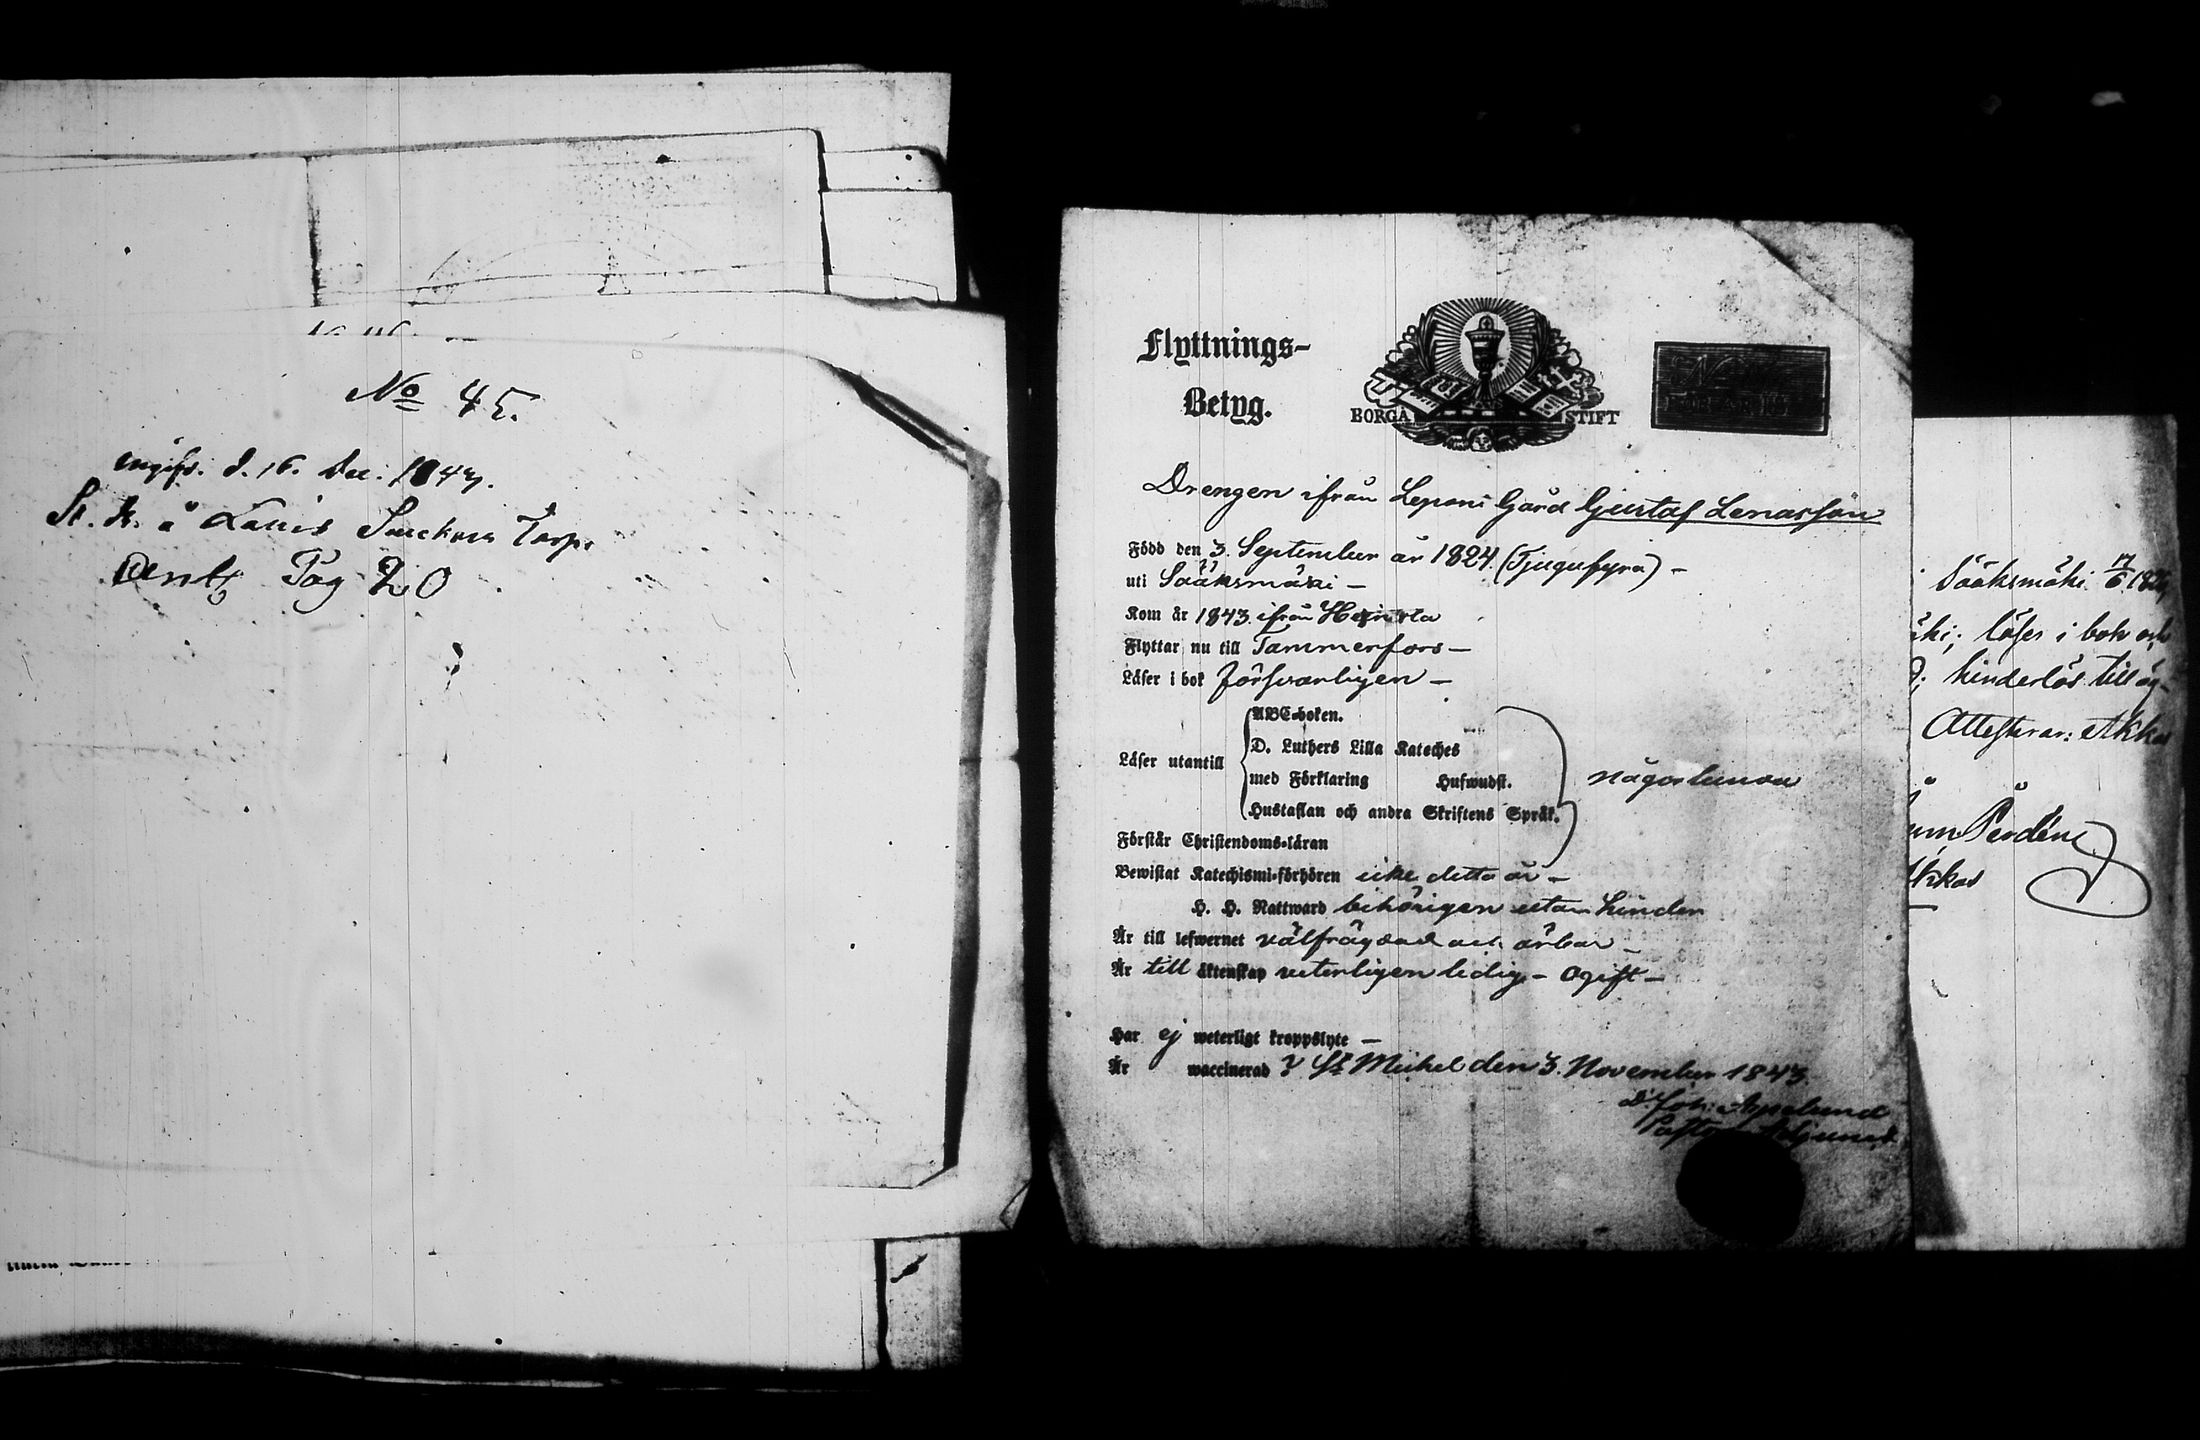 No 45.
d. 16. Dec. 1843.
St. k. å Torp.
Pag 20
Flyttnings-
Betyg.
BORGÅ STIFT
Drengen ifrån Leponi Gård Gustaf Lenasson
Född den 3. September år 1824. (Tjugufyra) –
uti Sääksmäki –
Kom år 1843. ifrån Heinola
Flyttar nu till Tammerfors –
Läser i bok försvarligen –
ABC-boken.
D. Luthers Lilla Kateches
Läser utantill
med Förklaring Hufwudst. någorlunda
Hustaflan och andra Skriftens Språk.
Förstår Christendoms-läran
Bewistat Katechismi-förhören icke detta år –
H. H. Nattward behörigen utan hinder
Är till lefwernet välfrägdad och ärbar –
Är till äktenskap veterligen ledig – ogift –
Har ej weterligt kroppslyte –
Är waccinerad ? St Michel den 3. November 1843.
Joh: Appelund
Adjunct
Sääksmäki 17/6 1824
läser i bok och
hinderlös till äg-
Attesterar: Akkas
Perdén
Akkas